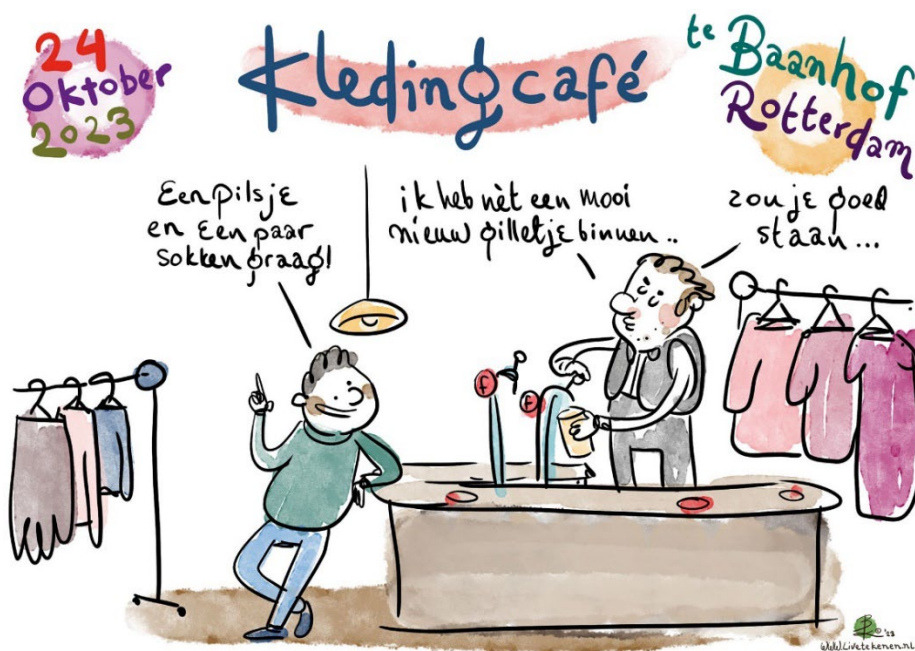 24
Oktober
2023
Kledingcafé
te Baanhof
Rotterdam
Een pilsje
en een paar
sokken graag!
ik heb nèt een mooi
nieuw gilletje binnen ..
zou je goed
staan ...
f
f
© '23
www.Livetekenen.nl